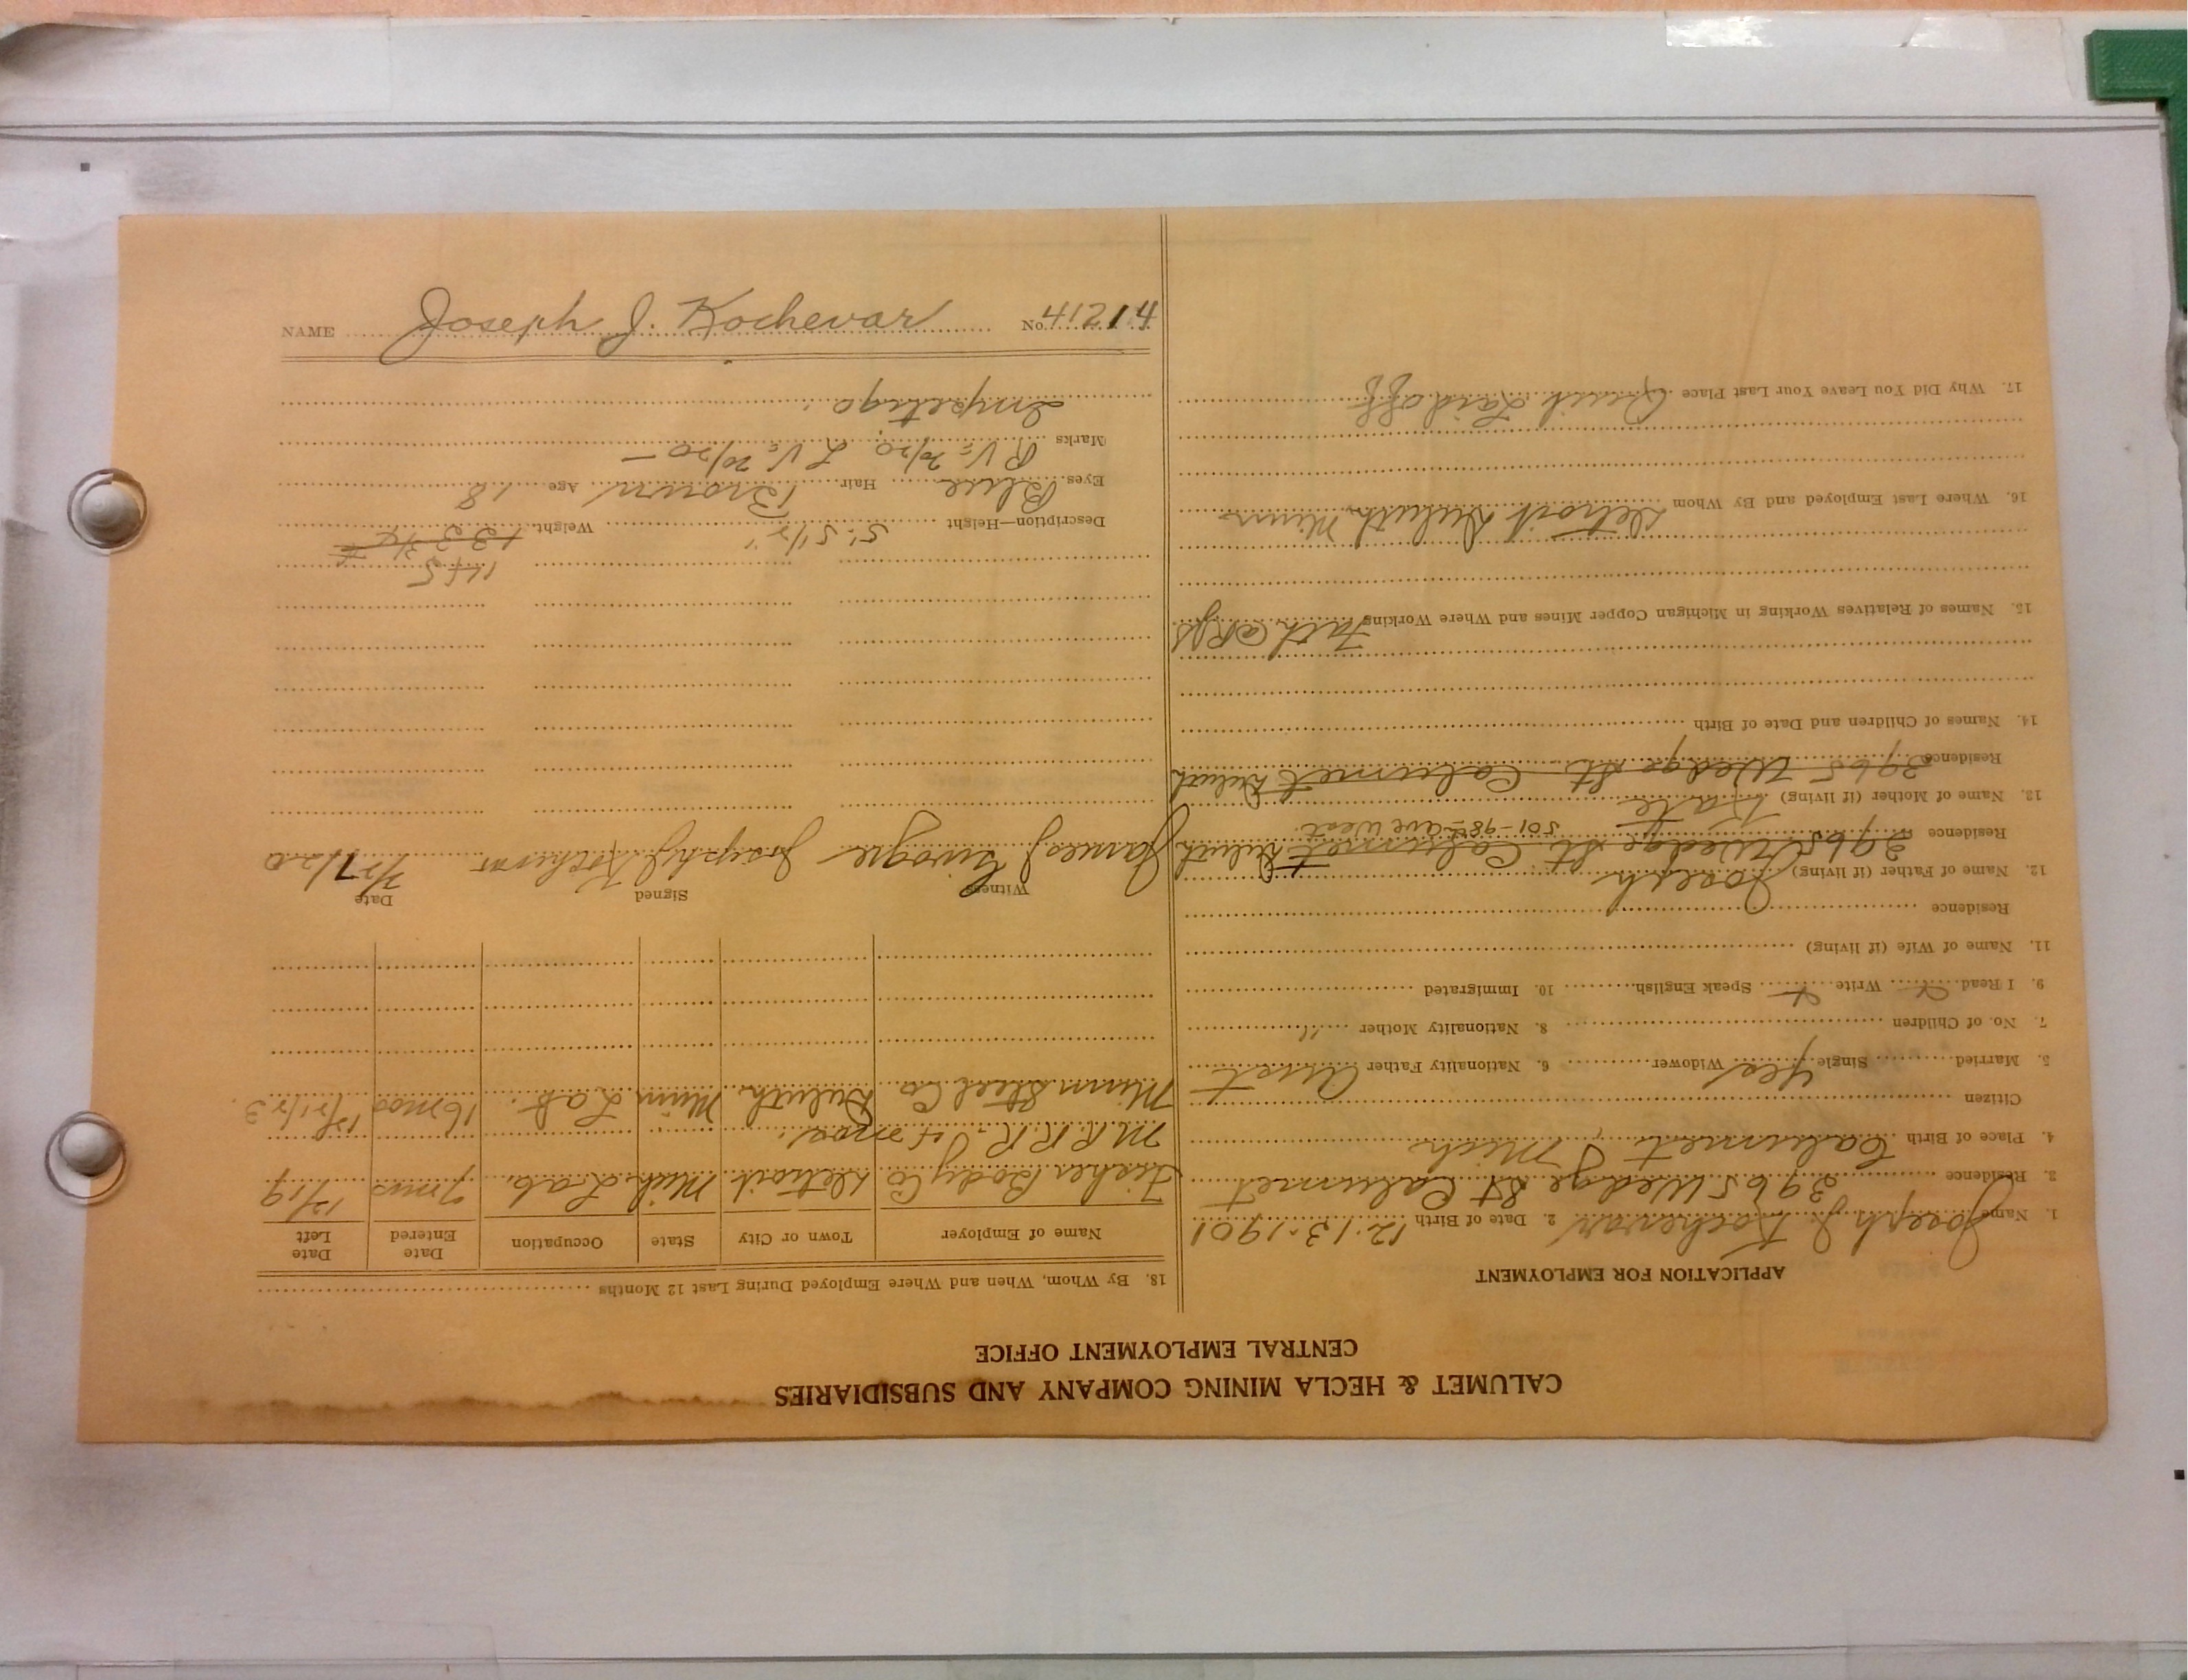 CALUMET & HECLA MINING COMPANY AND SUBSIDIARIES
CENTRAL EMPLOYMENT OFFICE
APPLICATION FOR EMPLOYMENT
1. Name Joseph J. Kochevar 2. Date of Birth 12-13-1901
3. Residence 3965 Wedge St Calumet
4. Place of Birth Calumet, Mich
Citizen
5. Married Single Yes Widower 6. Nationality Father Aust
7. No. of Children 8. Nationality Mother "
9. I Read Write Speak English 10. Immigrated
11. Name of Wife (if living)
Residence
12. Name of Father (if living) Joseph
Residence 3965 Wedge St Calumet Duluth
501-98th ave West
13. Name of Mother (if living) Kate
Residence 3965 Wedge St Calumet Duluth
14. Names of Children and Date of Birth
15. Names of Relatives Working in Michigan Copper Mines and Where Working Fath
16. Where Last Employed and By Whom Detroit Duluth, Minn
17. Why Did You Leave Your Last Place Quit Laid off
18. By Whom, When and Where Employed During Last 12 Months
Name of Employer Town or City State Occupation Date Entered Date Left
Fisher Body Co Detroit Mich Lab. 7 mos 12/19
M.R.R.R.
Minn Steel Co Duluth Minn Lab. 16 mos 12/21/23
Witness Signed Date
James J Joseph J Kochevar 7/27/20
145
Description—Height 5' 5 1/2" Weight 133 3/4 #
Eyes Blue Hair Brown Age 18
R V = 20/20, L V = 20/20 -
Marks
Impetigo
NAME Joseph J. Kochevar No. 41214